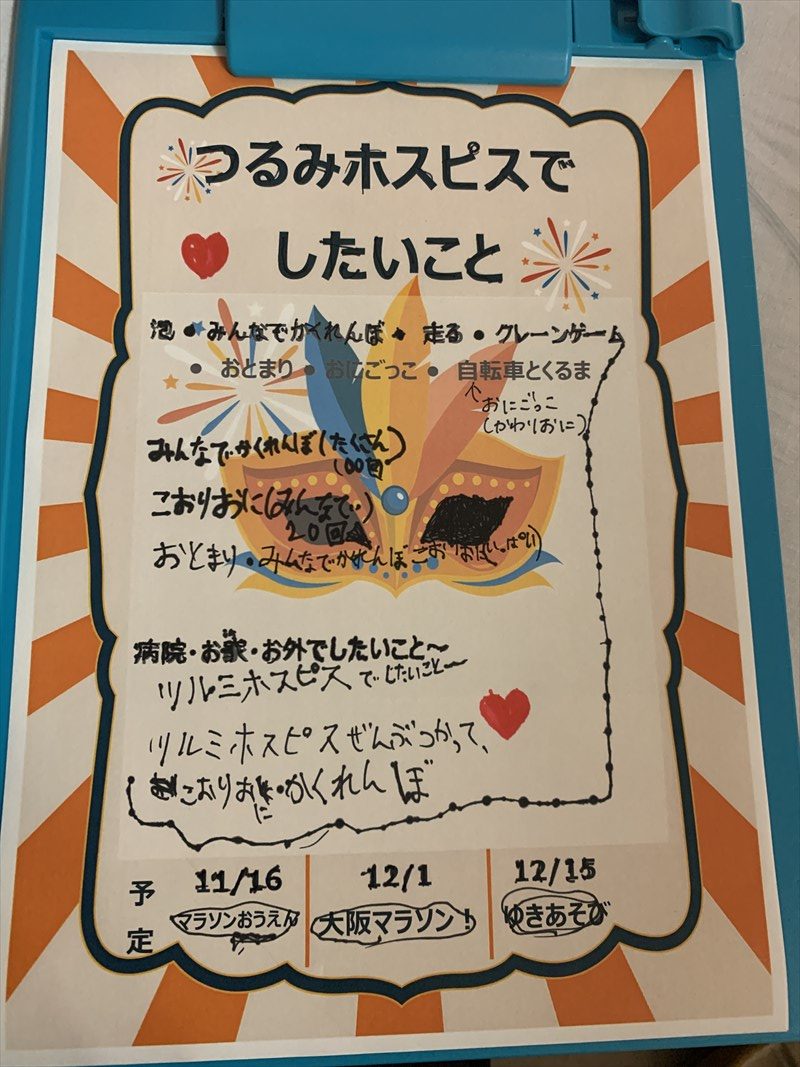 つるみホスピスで
したいこと
泡・みんなでかくれんぼ・走る・クレーンゲーム
・おとまり・おにごっこ・自転車とくるま
↑おにごっこ
(かわりおに)
みんなでかくれんぼ(たくさん)
100回
こおりおに(みんなで)
20回
おとまり・みんなでかくれんぼ
病院・お歌・お外でしたいこと〜
ツルミホスピスでしたいこと〜
ツルミホスピスぜんぶつかって、
こおりおに・かくれんぼ
予定
11/16 12/1 12/15
マラソンおうえん 大阪マラソン! ゆきあそび